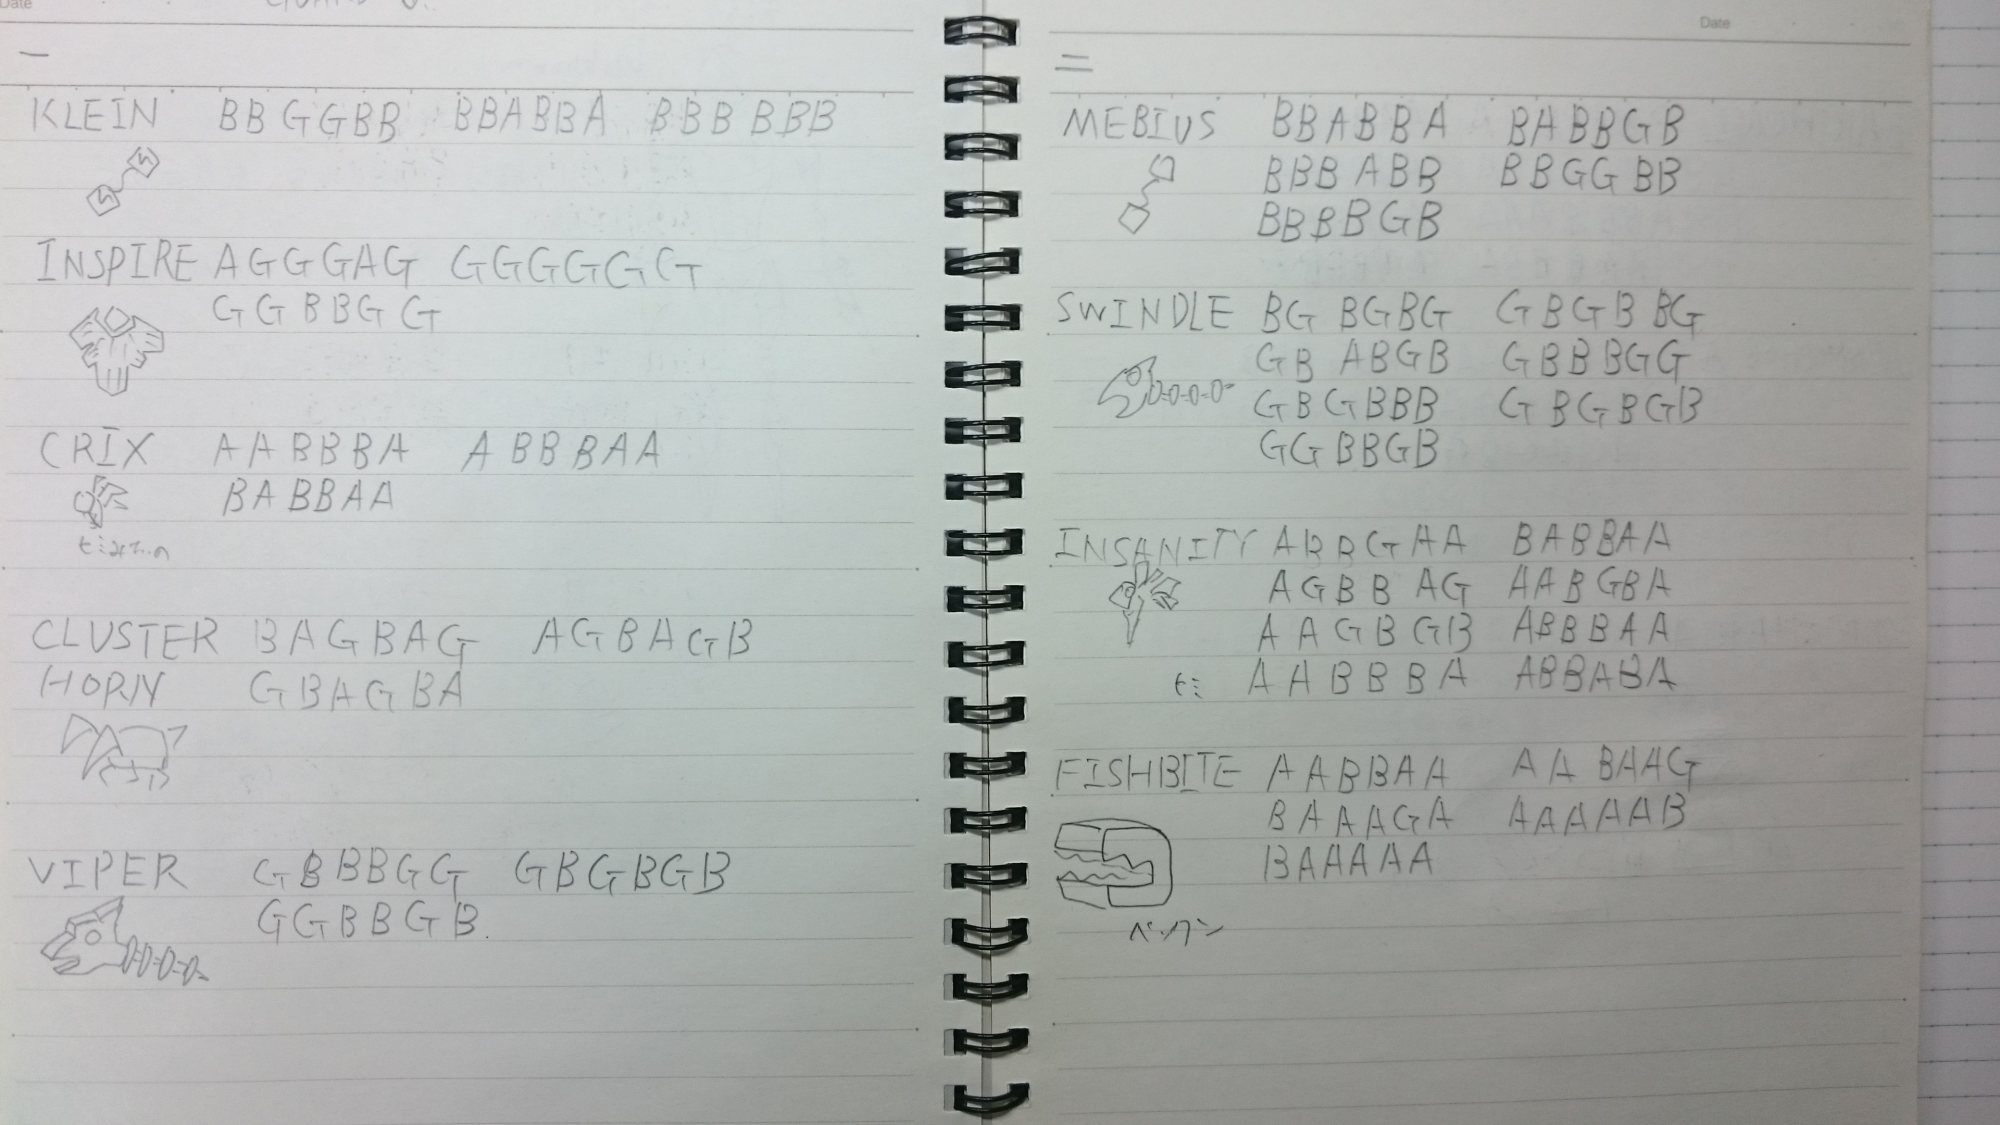 Date
一
KLEIN BBGGBB BBABBA BBBBBB
INSPIRE AGGGAG GGGGGG
GGBBGG
CRIX AABBBA ABBBAA
BABBAA
CLUSTER BAGBAG AGBAGB
HORN GBAGBA
VIPER GBBBGG GBGBGB
GGBBGB
Date
二
MEBIUS BBABBA BABBGB
BBBABB BBGGBB
BBBBGB
SWINDLE BGBGBG GBGBBG
GBABGB GBBBGG
GBGBBB GBGBGB
GGBBGB
INSANITY ABBGAA BABBAA
AGBBAG AABGBA
AAGBGB ABBBAA
ヒミ AABBBA ABBABA
FISHBITE AABBAA AABAAG
BAAAGA AAAAAB
BAAAAA